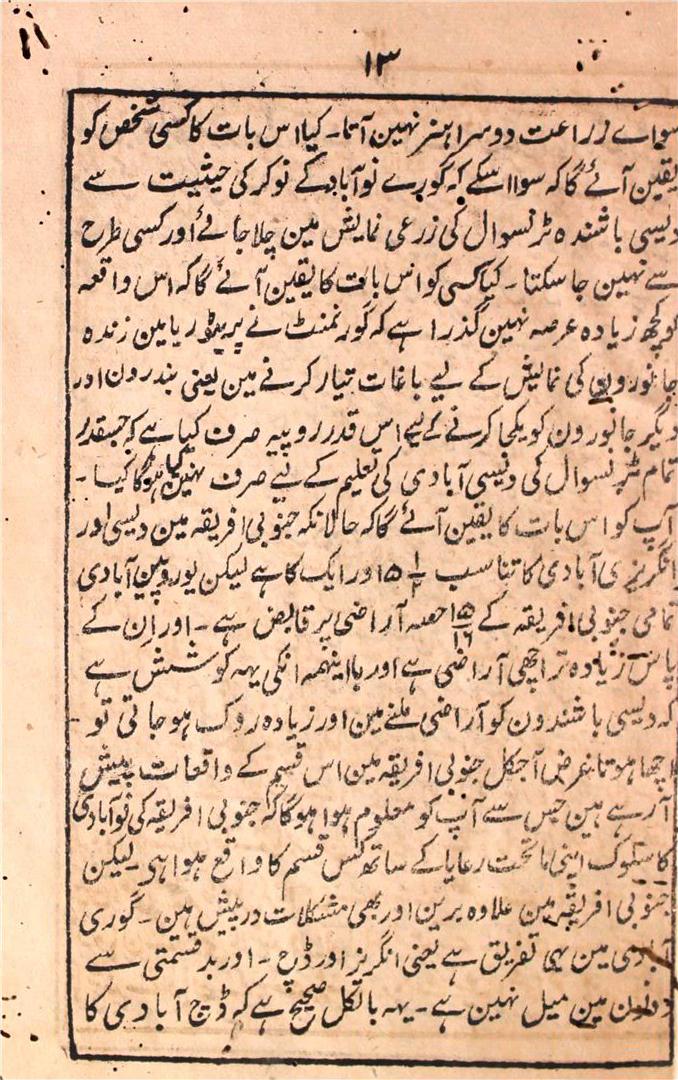 ۱۳
سواے زراعت دوسرا ہنر نہین آتا۔ کیا اس بات کا کسی شخص کو
یقین آئے گا کہ سوا اسکے کہ گورے نوآباد کے نوکر کی حیثیت سے
دیسی باشندہ ٹرنسوال کی زرعی نمایش مین چلا جائے اور کسی طرح
سے نہین جا سکتا۔ کیا کسی کو اس بات کا یقین آئے گا کہ اس واقعہ
کو کچھ زیادہ عرصہ نہین گذرا ہے کہ گورنمنٹ نے پریٹوریا مین زندہ
جانورون کی نمایش کے لیے باغات تیار کرنے مین یعنی بندرون اور
دیگر جانورون کو یکجا کرنے کے لیے اس قدر روپیہ صرف کیا ہے کہ جسقدر
تمام ٹرنسوال کی دیسی آبادی کی تعلیم کے لیے صرف نہین کیا ہوگا گیا۔
آپ کو اس بات کا یقین آئے گا کہ حالانکہ جنوبی افریقہ مین دیسی اور
انگریزی آبادی کا تناسب ۵ ۱/۲ اور ایک کا ہے لیکن یوروپین آبادی
تمامی جنوبی افریقہ کے ۱۵/۱۶ حصہ آراضی پر قابض ہے۔ اور اِن کے
پاس زیادہ تر اچھی آراضی ہے اور بااینہمہ انکی یہہ کوشش ہے
کہ دیسی باشندون کو آراضی ملنے مین اور زیادہ روک ہو جاتی تو
اچھا ہوتا غرض آجکل جنوبی افریقہ مین اس قسم کے واقعات پیش
آ رہے ہین جس سے آپ کو معلوم ہوا ہوگا کہ جنوبی افریقہ کی نوآبادی
کا سلوک اپنی ماتحت رعایا کے ساتھ کس قسم کا واقع ہوا ہے۔ لیکن
جنوبی افریقہ مین علاوہ برین اور بھی مشکلات درپیش ہین۔ گوری
آبادی مین بھی تفریق ہے یعنی انگریز اور ڈچ۔ اور بدقسمتی سے
دونون مین میل نہین ہے۔ یہہ بالکل صحیح ہے کہ ڈچ آبادی کا